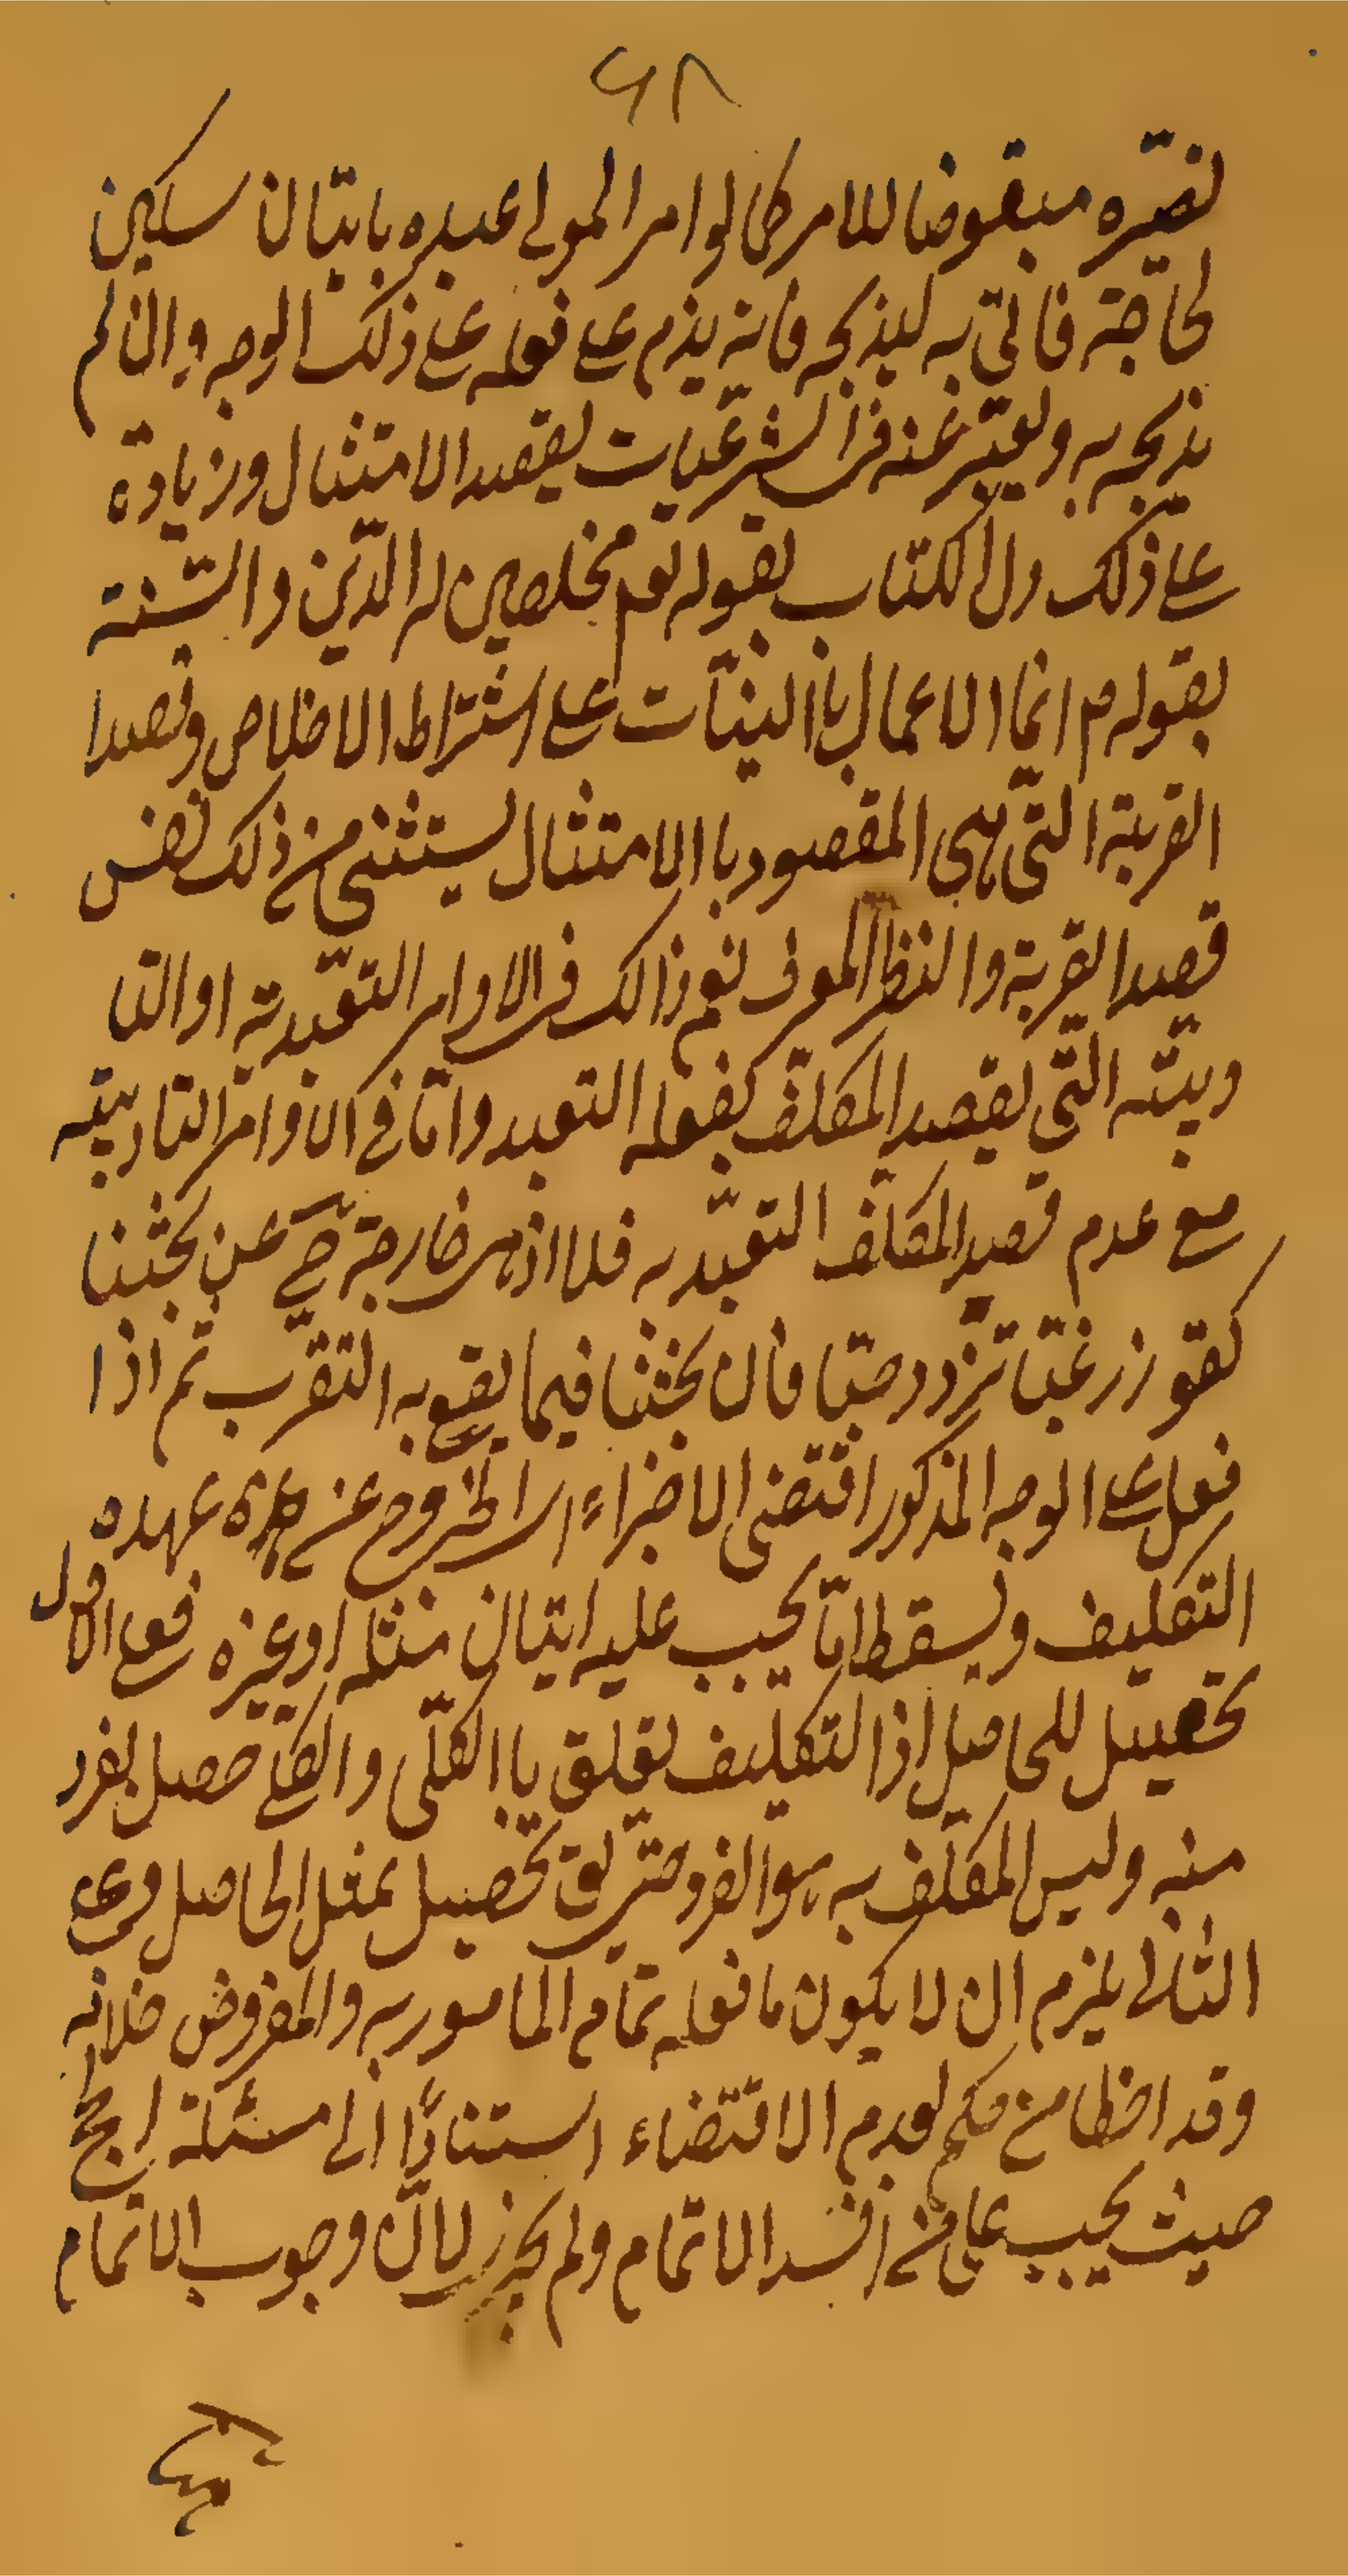 ۶۸
تصيّره مبغوضا للامر كما لو امر المولى عبده باتيان سكين
لحاجة فاتى به ليذبحه فانه يذم على فعله على ذلك الوجه وان لم
يذبحه به ويعتبر عنه فى الشرعيات بقصد الامتثال وزيادة
على ذلك دل الكتاب بقوله تعم مخلصين له الدّين والسّنة
بقوله م انما الاعمال باالنيّات على اشتراط الاخلاص وقصدا
القربة التّى هى المقصود باالامتثال يستثنى من ذلك نفس
قصد القربة والنظر المعرف نعم ذالك فى الاوامر التعبّدية او التا
ديبيّه التّى يقصد المكلّف بفعله التعبد وامّا فى الاوامر التاديبيّه
مع عدم قصد المكلّف التعبّد به فلا اذ هى خارجة ح عن بحثنا
كقو زرغبّا تزدد حبّا فان بحثنا فيما يقع به التقرّب ثم اذا
فعل على الوجه المذكور اقتضى الاجزاء اى الخروج عن عهده
التكليف ويسقط امّا يجب عليه اتيان مثله او غيره فعلى الاول
تحصيل للحاصل اذ التكليف تعلق باالكلّى والكلى حصل بفرد
منه وليس المكلّف به هو الفرد حتّى يق تحصيل بمثل الحاصل وعلى
الثانى يلزم ان لا يكون ما فعله تمام المامور به والمفروض خلافه
وقد اخطا من حكم لعدم الاقتضاء استنادًا الى مسئلة الحج
حيث يجب على من افسد الاتمام ولم يجز لانّ وجوب الاتمام